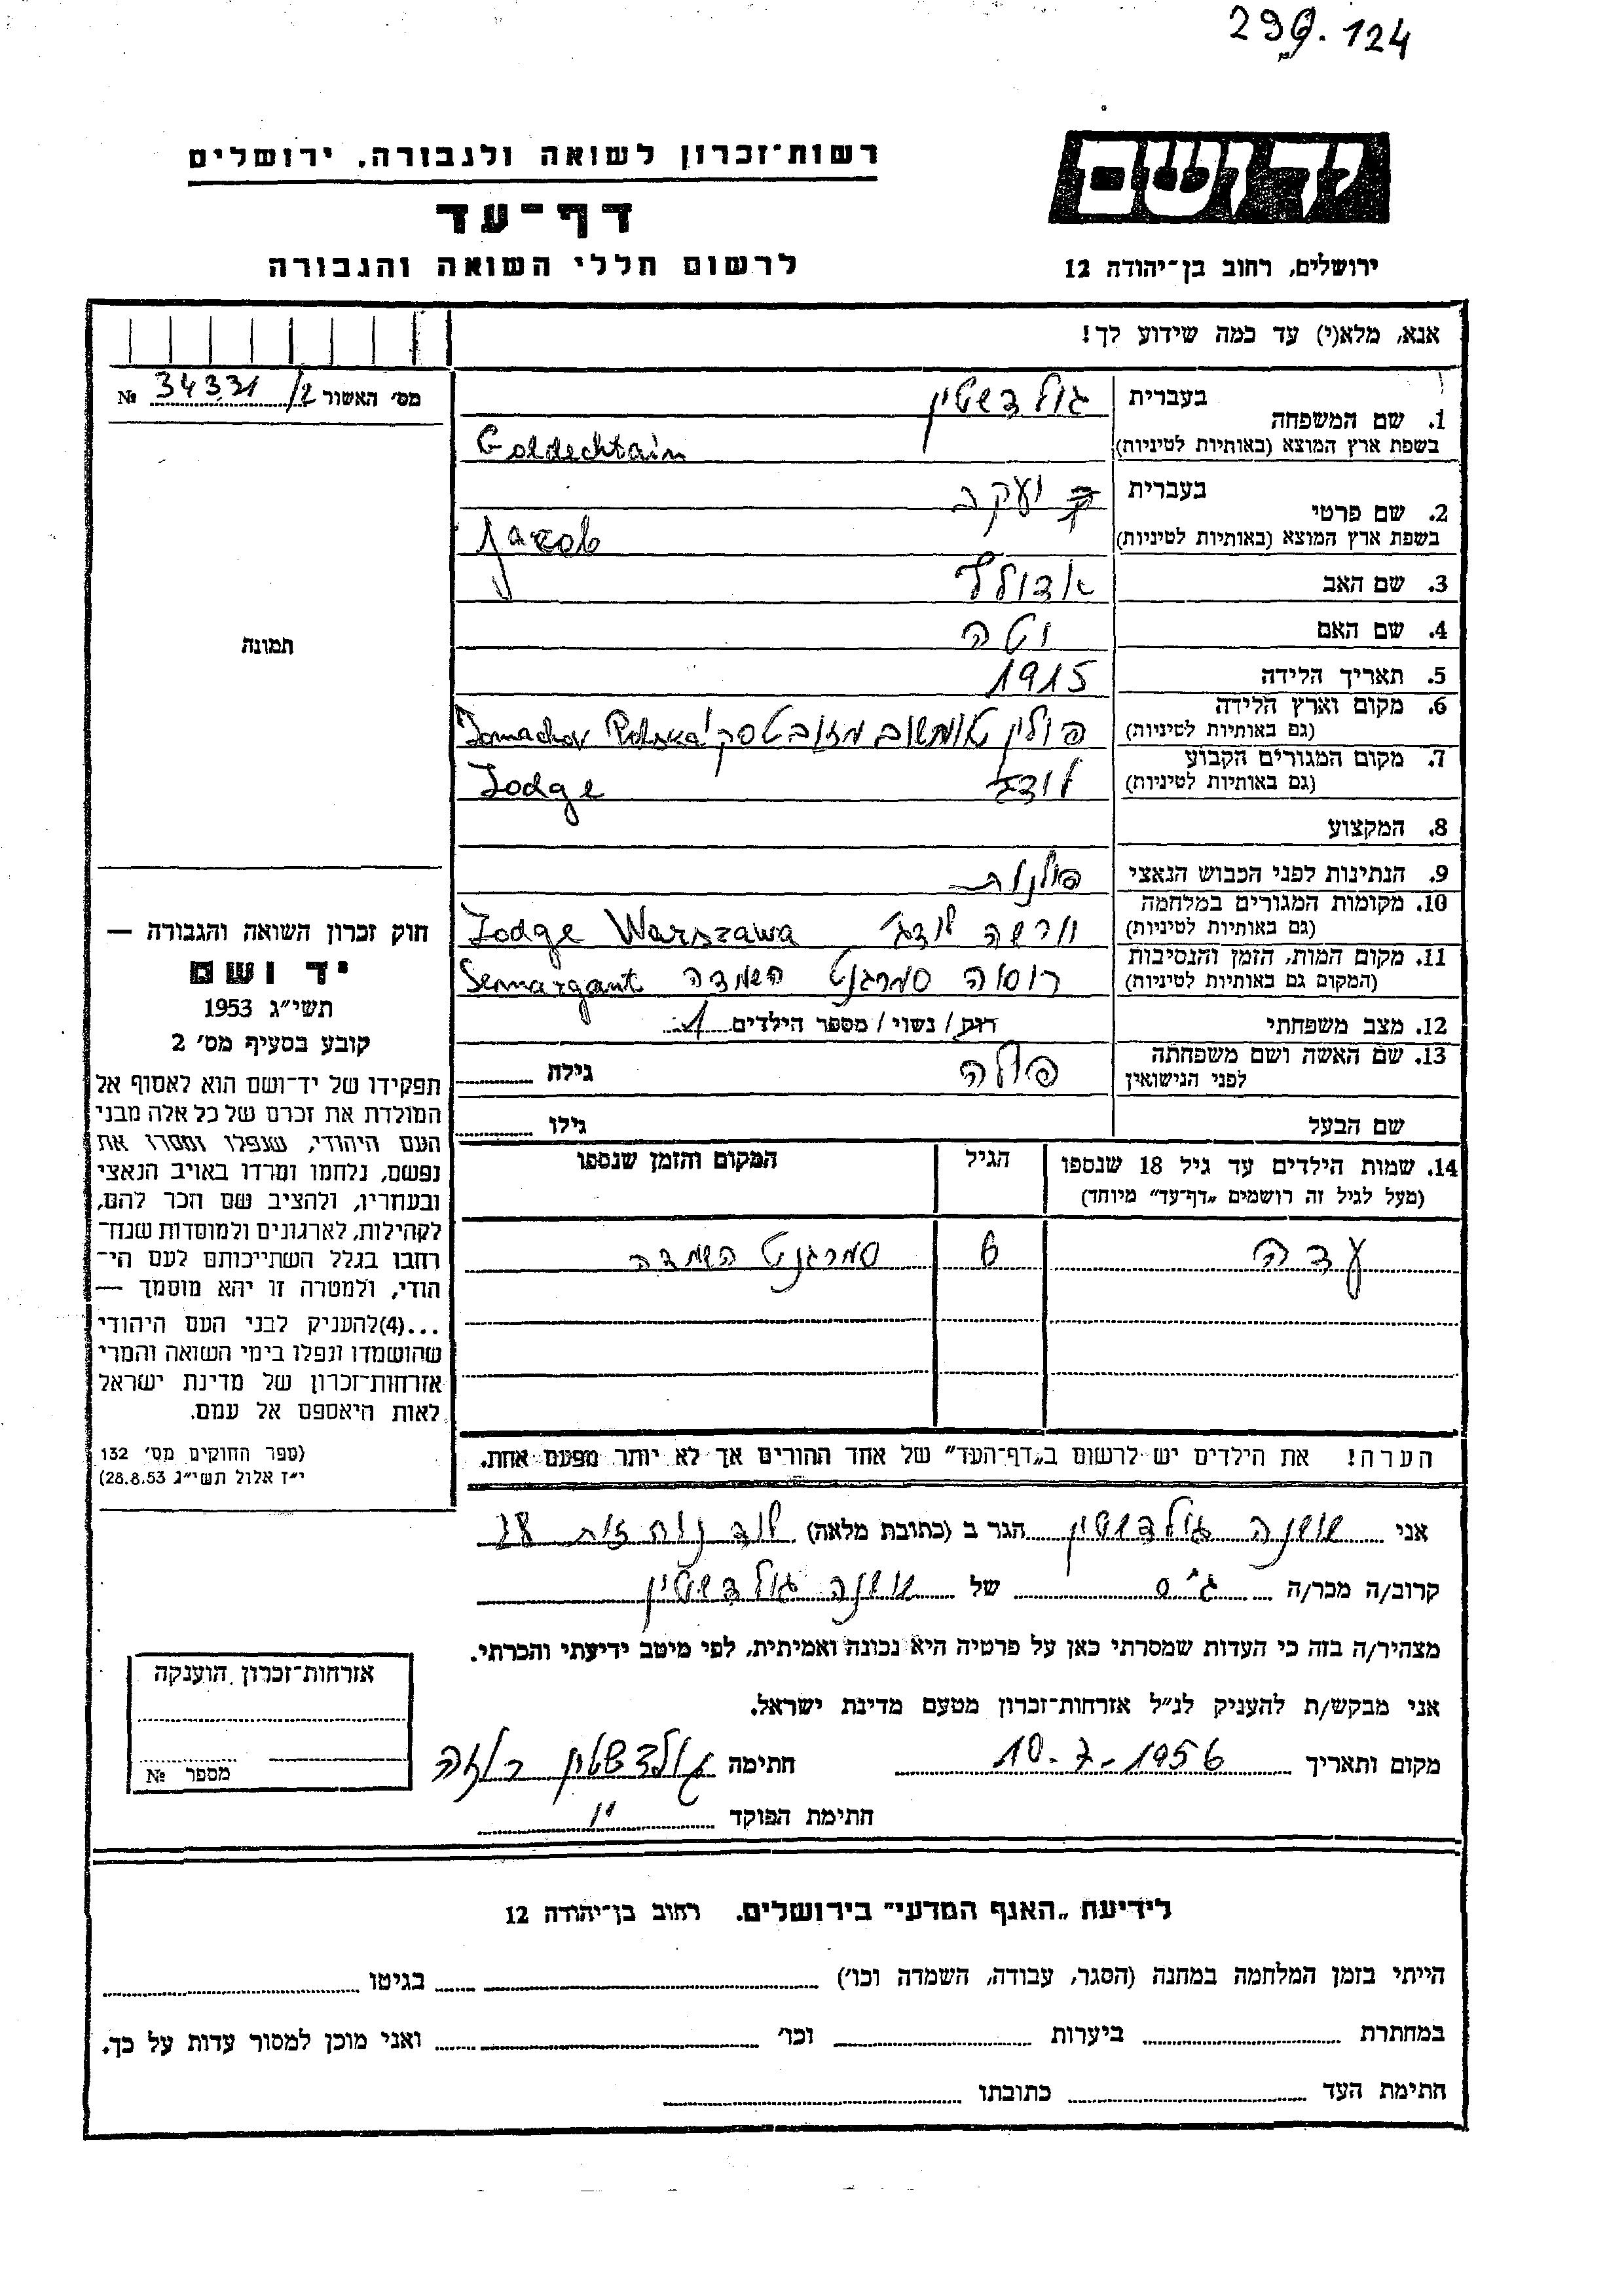 299.124
רשות־זכרון לשואה ולגבורה, ירושלים
דף־עד
לרשום חללי השואה והגבורה
יד ושם
ירושלים, רחוב בן־יהודה 12
אנא, מלא(י) עד כמה שידוע לך!
מס׳ האשור 34331/2 №
1. שם המשפחה בעברית גולדשטין
בשפת ארץ המוצא (באותיות לטיניות) Goldechtain
2. שם פרטי בעברית יעקב
בשפת ארץ המוצא (באותיות לטיניות) Jacob
3. שם האב אדולף
4. שם האם יטה
5. תאריך הלידה 1915
6. מקום וארץ הלידה (גם באותיות לטיניות) פולין טומשוב מזובטסקי Tomachov Polska
7. מקום המגורים הקבוע (גם באותיות לטיניות) לודג׳ Lodge
8. המקצוע
9. הנתינות לפני הכבוש הנאצי פולנית
10. מקומות המגורים במלחמה (גם באותיות לטיניות) ורשה לודג׳ Lodge Warszawa
11. מקום המות, הזמן והנסיבות (המקום גם באותיות לטיניות) רוסיה סמרגנט השמדה Semargant
12. מצב משפחתי רוק / נשוי / מספר הילדים 1
13. שם האשה ושם משפחתה לפני הנישואין פולה גילה
שם הבעל גילו
14. שמות הילדים עד גיל 18 שנספו
(מעל לגיל זה רושמים „דף־עד״ מיוחד)
הגיל
המקום והזמן שנספו
עדה 6 סמרגנט השמדה
הערה! את הילדים יש לרשום ב„דף־העד״ של אחד ההורים אך לא יותר מפעם אחת.
תמונה
חוק זכרון השואה והגבורה —
יד ושם
תשי״ג 1953
קובע בסעיף מס׳ 2
תפקידו של יד־ושם הוא לאסוף אל
המולדת את זכרם של כל אלה מבני
העם היהודי, שנפלו ומסרו את
נפשם, נלחמו ומרדו באויב הנאצי
ובעוזריו, ולהציב שם וזכר להם,
לקהילות, לארגונים ולמוסדות שנח־
רחבו בגלל השתייכותם לעם הי־
הודי, ולמטרה זו יהא מוסמך —
...(4)להעניק לבני העם היהודי
שהושמדו ונפלו בימי השואה והמרי
אזרחות־זכרון של מדינת ישראל
לאות היאספם אל עמם.
(ספר החוקים מס׳ 132
י״ז אלול תשי״ג 28.8.53)
אני שושנה גולדשטין הגר ב (כתובת מלאה) לוד נוה זית 28
קרוב/ה מכר/ה גיס של שושנה גולדשטין
מצהיר/ה בזה כי העדות שמסרתי כאן על פרטיה היא נכונה ואמיתית, לפי מיטב ידיעתי והכרתי.
אני מבקש/ת להעניק לנ״ל אזרחות־זכרון מטעם מדינת ישראל.
מקום ותאריך 10-7-1956 חתימה גולדשטין רוזה
חתימת הפוקד
אזרחות־זכרון הוענקה
מספר №
לידיעת „האגף המדעי״ בירושלים. רחוב בן־יהודה 12
הייתי בזמן המלחמה במחנה (הסגר, עבודה, השמדה וכו׳) בגיטו
במחתרת ביערות וכו׳ ואני מוכן למסור עדות על כך.
חתימת העד כתובתו